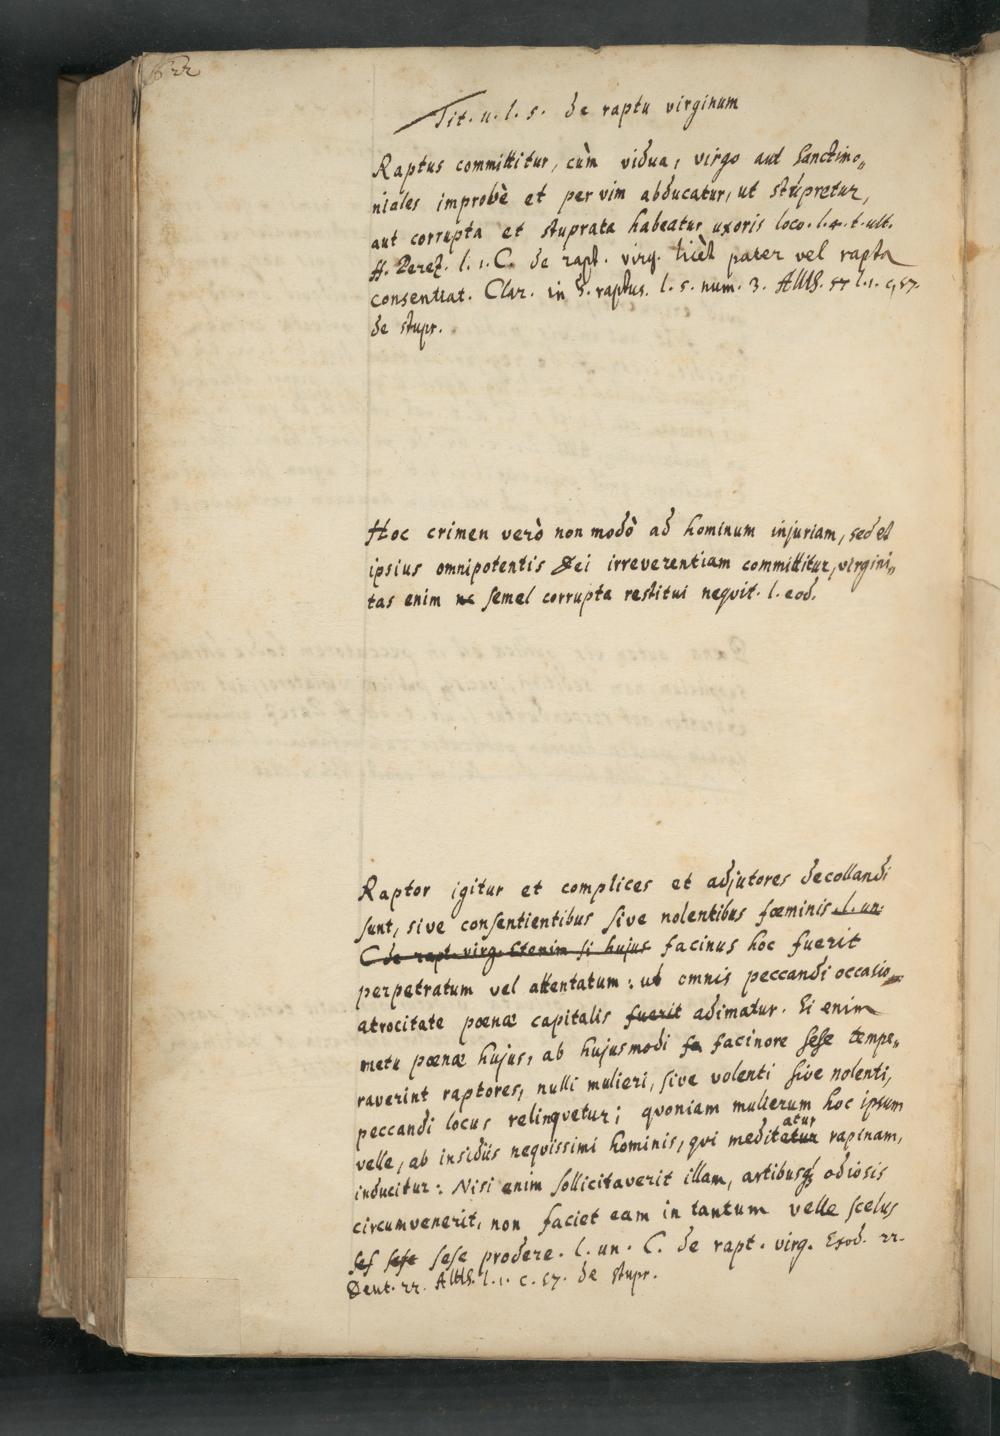 Tit. u. l. s. de raptu virginum
Raptus committitur, cùm vidua, virgo aut Sanctimo„
niales improbè et per vim abducatur, ut stupretur,
aut corrupta et stuprata habeatur uxoris loco. l. 4. t. ult.
ff. Perez. l. 1. C. de rapt. virg. licèt pater vel rapta
consentiat. Clar. in §. raptus. l. 5. num. 3. l. 1. c, 57.
de stupr.
Hoc crimen verò non modò ad hominum injuriam, sed et
ipsius omnipotentis Dei irreverentiam committitur, virgini„
tas enim ne semel corrupta restitui neqvit. l. eod.
Raptor igitur et complices et adjutores decollandi
sunt, sive consentientibus sive nolentibus fœminis. l. un:
C de rapt. virg. Etenim si hujus facinus hoc fuerit
perpetratum vel attentatum: ut omnis peccandi occasio
atrocitate pœnæ capitalis fuerit adimatur. Si enim
metu pœnæ hujus, ab hujusmodi fa facinore sese tempe„
raverint raptores, nulli mulieri, sive volenti sive nolenti,
peccandi locus relinqvetur; qvoniam mulierum hoc ipsum
velle, ab insidiis neqvissimi hominis, qvi meditetur atur rapinam,
inducitur: Nisi enim sollicitaverit illam, artibusq odiosis
circumvenerit, non faciet eam in tantum velle scelus
sef sese sese prodere. l. un. C. de rapt. virg. Exod. 22.
Deut. 22. l. 1. c. 57. de stupr.